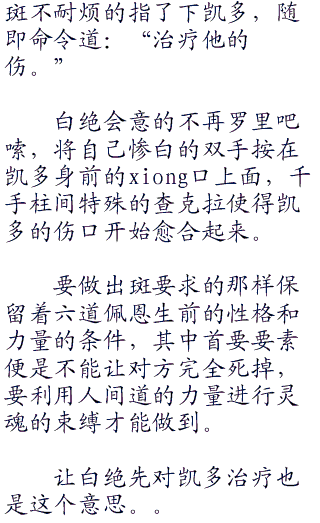 斑不耐烦的指了下凯多，随
即命令道：“治疗他的
伤。”
白绝会意的不再罗里吧
嗦，将自己惨白的双手按在
凯多身前的xiong口上面，千
手柱间特殊的查克拉使得凯
多的伤口开始愈合起来。
要做出斑要求的那样保
留着六道佩恩生前的性格和
力量的条件，其中首要要素
便是不能让对方完全死掉，
要利用人间道的力量进行灵
魂的束缚才能做到。
让白绝先对凯多治疗也
是这个意思。。